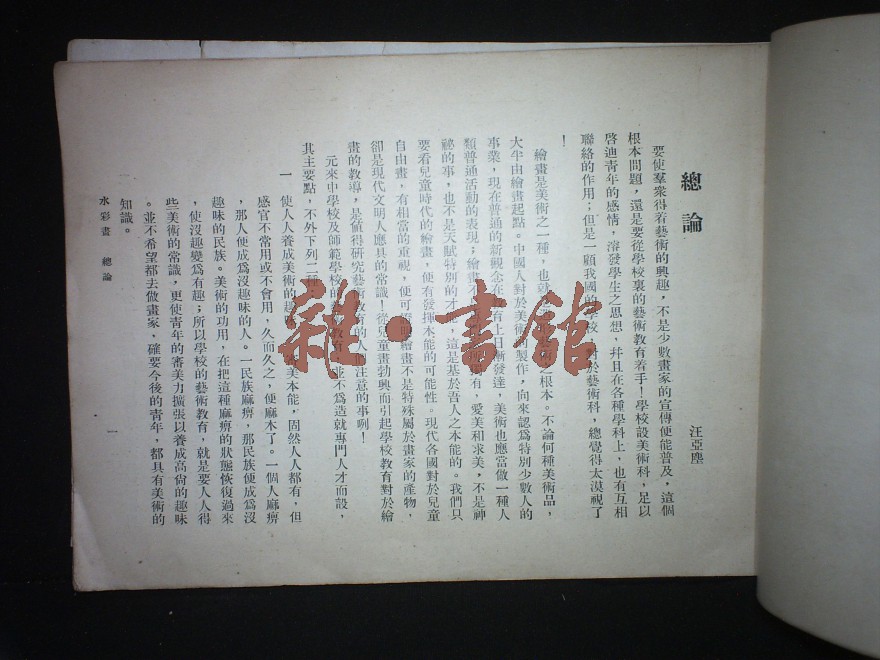 總論
汪亞塵
要使羣衆得着藝術的興趣，不是少數畫家的宣傳便能普及，這個
根本問題，還是要從學校裏的藝術教育着手！學校設美術科，足以
啓迪青年的感情，濬發學生之思想，幷且在各種學科上，也有互相
聯絡的作用；但是一顧我國的學校，對於藝術科，總覺得太漠視了
！
繪畫是美術之一種，也就 根本。不論何種美術品，
大半由繪畫起點。中國人對於美術 製作，向來認爲特別少數人的
事業，現在普通的新觀念 有上日漸發達，美術也應當做一種人
類普通活動的表現；繪畫 有，愛美和求美，不是神
祕的事，也不是天賦特別的才 ，這是基於吾人之本能的。我們只
要看兒童時代的繪畫，便有發揮本能的可能性。現代各國對於兒童
自由畫，有相當的重視，便可 明繪畫不是特殊屬於畫家的產物，
卻是現代文明人應具的常識！從兒童畫勃興而引起學校教育對於繪
畫的教導，是値得研究藝術教育的人們注意的事咧！
元來中學校及師範學校的 教育，並不爲造就專門人才而設，
其主要點，不外下列二種
一 使人人養成美術的趣 審美本能，固然人人都有，但
感官不常用或不會用，久而久之，便麻木了。一個人麻痹
，那人便成爲沒趣味的人。一民族麻痹，那民族便成爲沒
趣味的民族。美術的功用，在把這種麻痹的狀態恢復過來
，使沒趣變爲有趣；所以學校的藝術教育，就是要人人得
些美術的常識，更使青年的審美力擴張以養成高尙的趣味
。並不希望都去做畫家，確要今後的青年，都具有美術的
知識。
水彩畫 總論
一
雜·書館